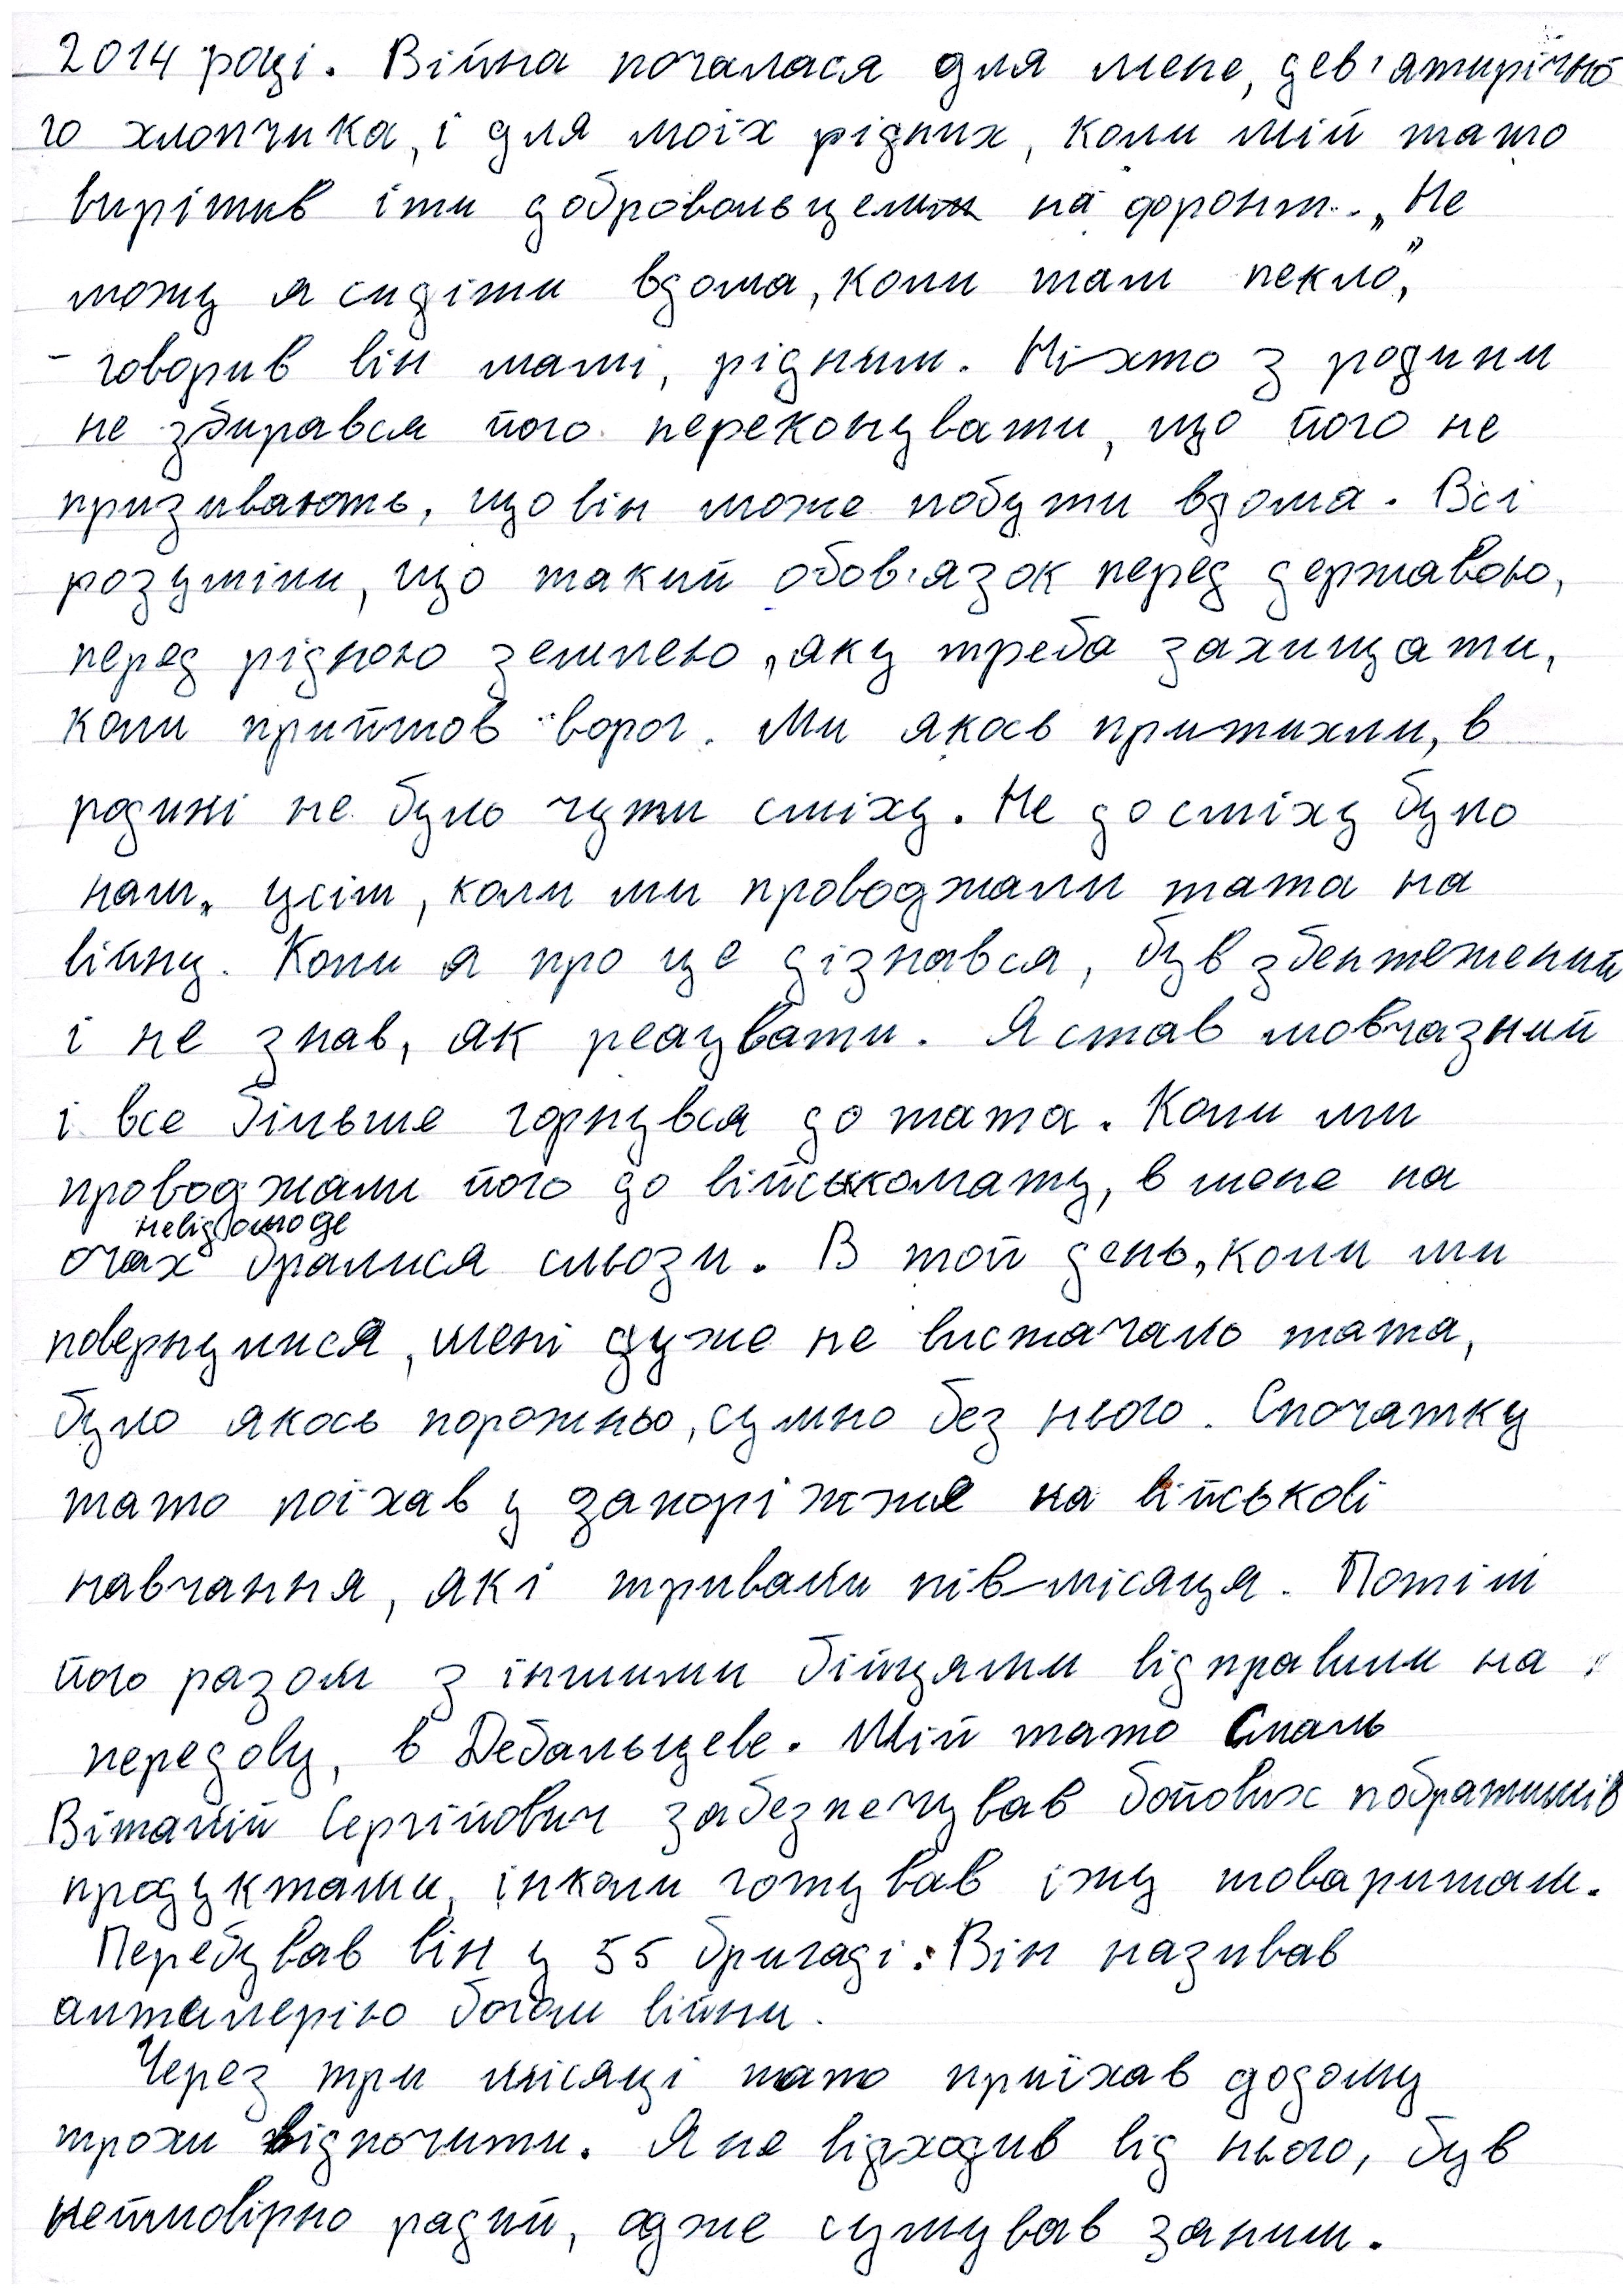 2014 році. Війна почалася для мене, дев'ятирічно
го хлопчика, і для моїх рідних, коли мій тато
вирішив іти добровольцем на фронт. „Не
можу я сидіти вдома, коли там пекло",
- говорив він мамі, рідним. Ніхто з родини
не збирався його переконувати, що його не
призивають, що він може побути вдома. Всі
розуміли, що такий обов'язок перед державою,
перед рідною землею, яку треба захищати,
коли прийшов ворог. Ми якось притихли, в
родині не було чути сміху. Не до сміху було
нам, усім, коли ми проводжали тата на
війну. Коли я про це дізнався, був збентежений
і не знав, як реагувати. Я став мовчазний
і все більше горнувся до тата. Коли ми
проводжали його до військомату, в мене на
очах невідомо де бралися сльози. В той день, коли ми
повернулися, мені дуже не вистачало тата,
було якось порожньо, сумно без нього. Спочатку
тато поїхав у запоріжжя на військові
навчання, які тривали пів місяця. Потім
його разом з іншими бійцями відправили на
передову, в Дебальцеве. Мій тато Смаль
Віталій Сергійович забезпечував бойових побратимів
продуктами, інколи готував їжу товаришам.
Перебував він у 55 бригаді. Він називав
антилерію богом війни.
Через три місяці тато приїхав додому
трохи відпочити. Я не відходив від нього, був
неймовірно радий, адже сумував заним.